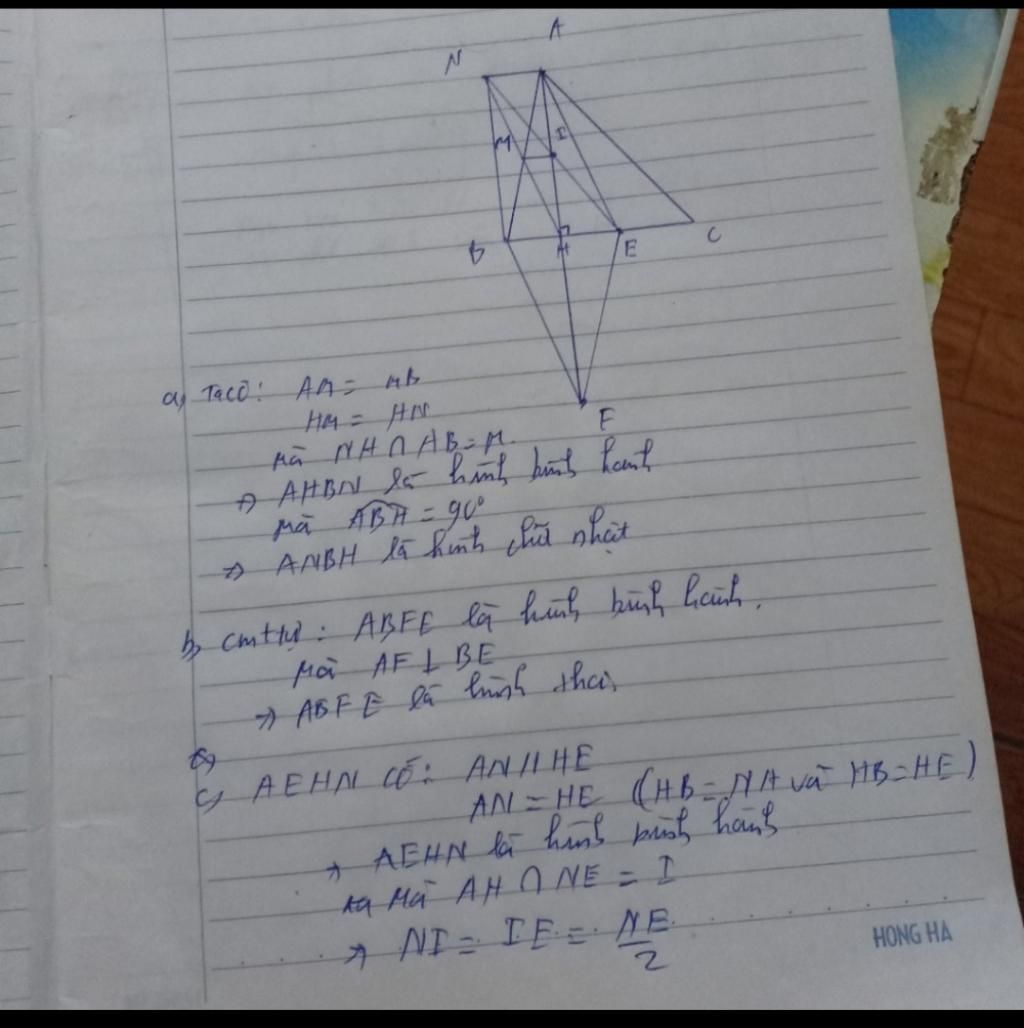 A
N
M
I
B
H
E
C
F
a, Ta có: AM = MB
HM = HN
mà NH ∩ AB = M.
=> AHBN là hình bình hành
mà ABH = 90°
=> ANBH là hình chữ nhật
b, cmttự: ABFE là hình bình hành.
mà AF ⊥ BE
=> ABFE là hình thoi
c, AEHN có: AN // HE
AN = HE (HB = NA và HB = HE)
=> AEHN là hình bình hành
mà AH ∩ NE = I
=> NI = IE = NE/2
HONG HA